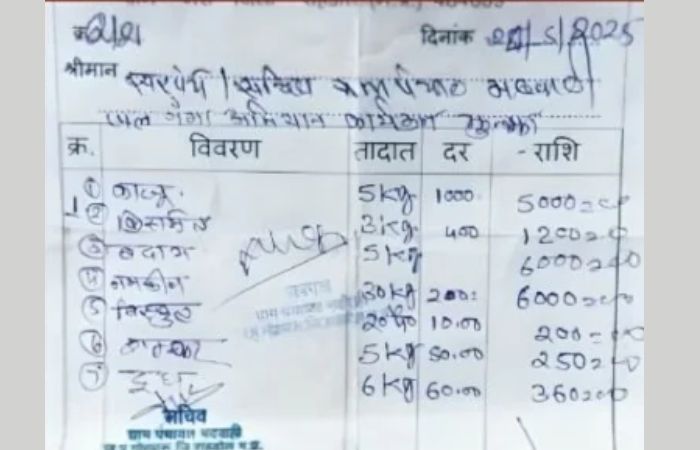 क्र 2121 दिनांक 25/5/2025
श्रीमान सरपंच / सचिव ग्राम पंचायत भदवाही
जल गंगा अभियान कार्यक्रम
क्र. विवरण तादात दर - राशि
① काजू 5 kg 1000 5000=00
② किसमिस 3 kg 400 1200=00
③ बदाम 5 kg 6000=00
④ नमकीन 30 kg 200= 6000=00
⑤ बिस्कुट 20 10.00 200=00
⑥ 5 kg 50.00 250=00
⑦ दूध 6 kg 60.00 360=00
सरपंच
ग्राम पंचायत भदवाही
सचिव
ग्राम पंचायत भदवाही